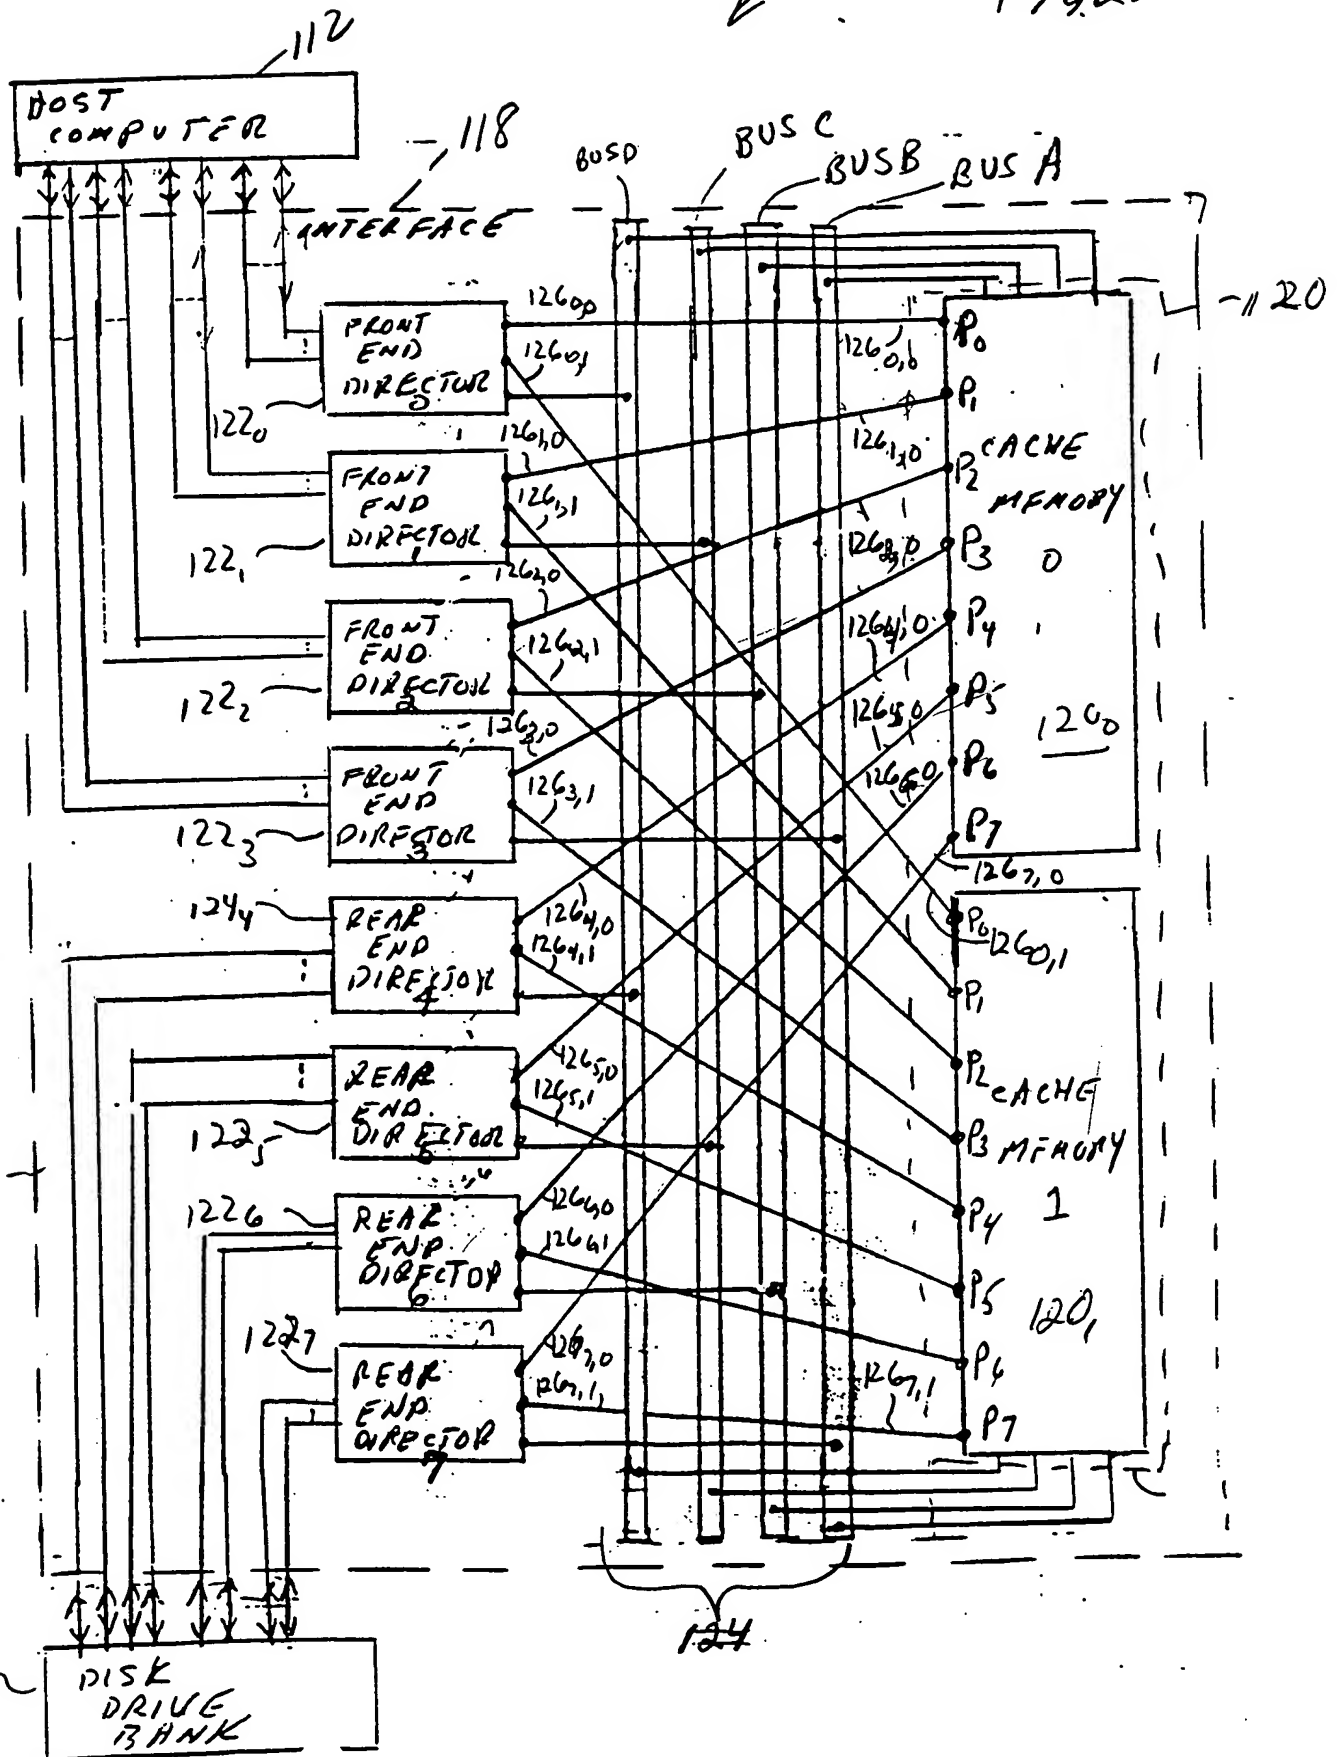 112
HOST
COMPUTER
118
INTERFACE
BUS D
BUS C
BUS B
BUS A
120
FRONT
END
DIRECTOR
0
122₀
126₀,₀
126₀,₁
126₀,₀
FRONT
END
DIRECTOR
1
122₁
126₁,₀
126₁,₁
126₁,₀
FRONT
END
DIRECTOR
2
122₂
126₂,₀
126₂,₁
126₂,₀
FRONT
END
DIRECTOR
3
122₃
126₃,₀
126₃,₁
REAR
END
DIRECTOR
4
124₄
126₄,₀
126₄,₁
126₄,₀
REAR
END
DIRECTOR
5
122₅
126₅,₀
126₅,₁
126₅,₀
REAR
END
DIRECTOR
6
122₆
126₆,₀
126₆,₁
126₆,₀
REAR
END
DIRECTOR
7
122₇
126₇,₀
126₇,₁
126₇,₁
P₀
P₁
P₂
P₃
P₄
P₅
P₆
P₇
CACHE
MEMORY
0
120₀
126₇,₀
P₀
126₀,₁
P₁
P₂
P₃
P₄
P₅
P₆
P₇
CACHE
MEMORY
1
120₁
124
DISK
DRIVE
BANK